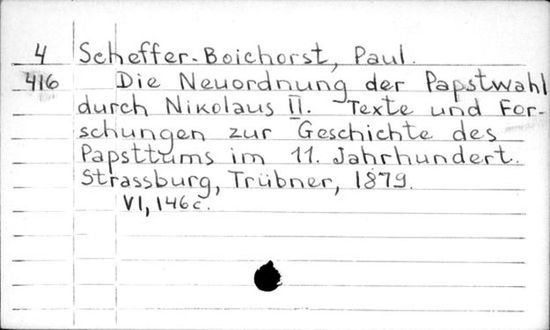 4 Scheffer-Boichorst, Paul.
416 Die Neuordnung der Papstwahl
durch Nikolaus II. Texte und For-
schungen zur Geschichte des
Papsttums im 11. Jahrhundert.
Strassburg, Trübner, 1879.
VI, 146 c.